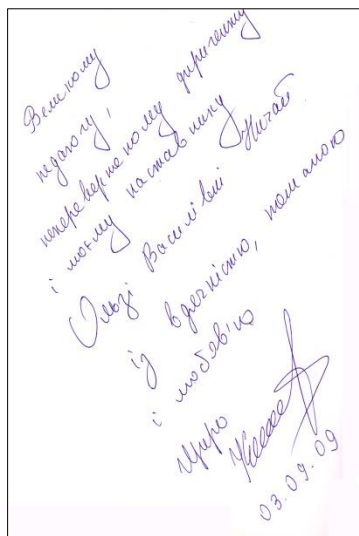 Великому
педагогу,
неперевершеному диригенту
і моєму наставнику
Ользі Василівні Ничай
із вдячністю, пошаною
і любов'ю
Щиро
03.09.09